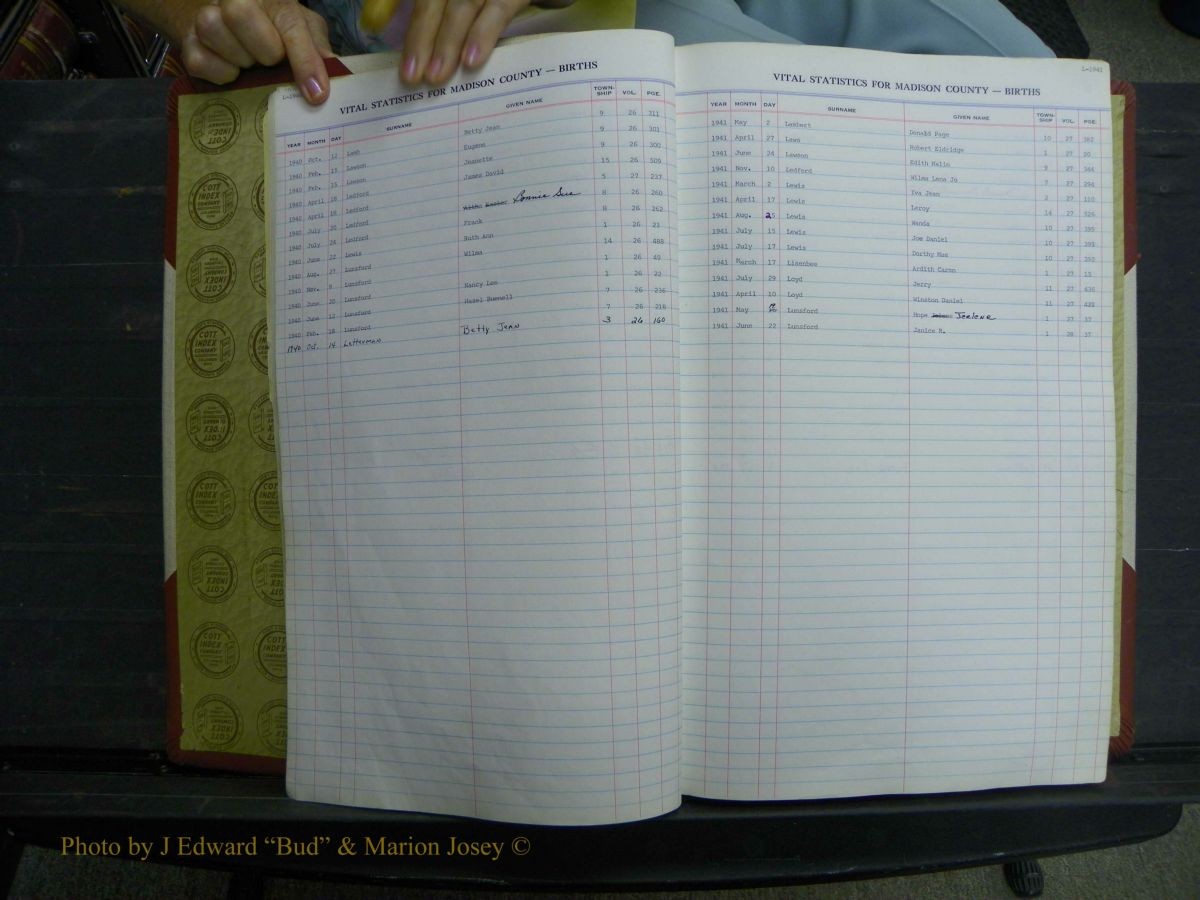 L-1941
VITAL STATISTICS FOR MADISON COUNTY — BIRTHS
YEAR MONTH DAY SURNAME GIVEN NAME TOWN-SHIP VOL. PGE.
1940 Oct. 12 Lawson Betty Jean 9 26 311
1940 Feb. 15 Lawson Eugene 9 26 301
1940 Feb. 15 Lawson Jeanette 9 26 300
1940 April 18 Ledford James David 15 26 509
1940 April 18 Ledford 5 27 237
1940 July 20 Ledford Bonnie Sue 8 26 260
1940 July 24 Ledford Frank 8 26 262
1940 June 22 Lewis Ruth Ann 1 26 21
1940 Aug. 27 Lunsford Wilma 14 26 488
1940 Nov. 8 Lunsford 1 26 49
1940 June 20 Lunsford Nancy Lee 1 26 22
1940 June 12 Lunsford Hazel Burnell 7 26 236
1940 Feb. 18 Lunsford 7 26 216
1940 Oct. 14 Letterman Betty Jean 3 26 160
VITAL STATISTICS FOR MADISON COUNTY — BIRTHS
YEAR MONTH DAY SURNAME GIVEN NAME TOWN-SHIP VOL. PGE.
1941 May 2 Lambert Donald Page 10 27 362
1941 April 27 Laws Robert Eldridge 1 27 20
1941 June 24 Lawson Edith Helin 9 27 344
1941 Nov. 10 Ledford Wilma Lena Jo 7 27 294
1941 March 2 Lewis Iva Jean 2 27 110
1941 April 17 Lewis Leroy 14 27 526
1941 Aug. 25 Lewis Wanda 10 27 395
1941 July 15 Lewis Joe Daniel 10 27 399
1941 July 17 Lewis Dorthy Mae 10 27 393
1941 March 17 Lisenbee Ardith Caron 1 27 15
1941 July 29 Loyd Jerry 11 27 430
1941 April 10 Loyd Winston Daniel 11 27 428
1941 May Lunsford Hope Jerlene 1 27 37
1941 June 22 Lunsford Janice M. 1 28 37
COTT INDEX COMPANY
Photo by J Edward “Bud” & Marion Josey ©